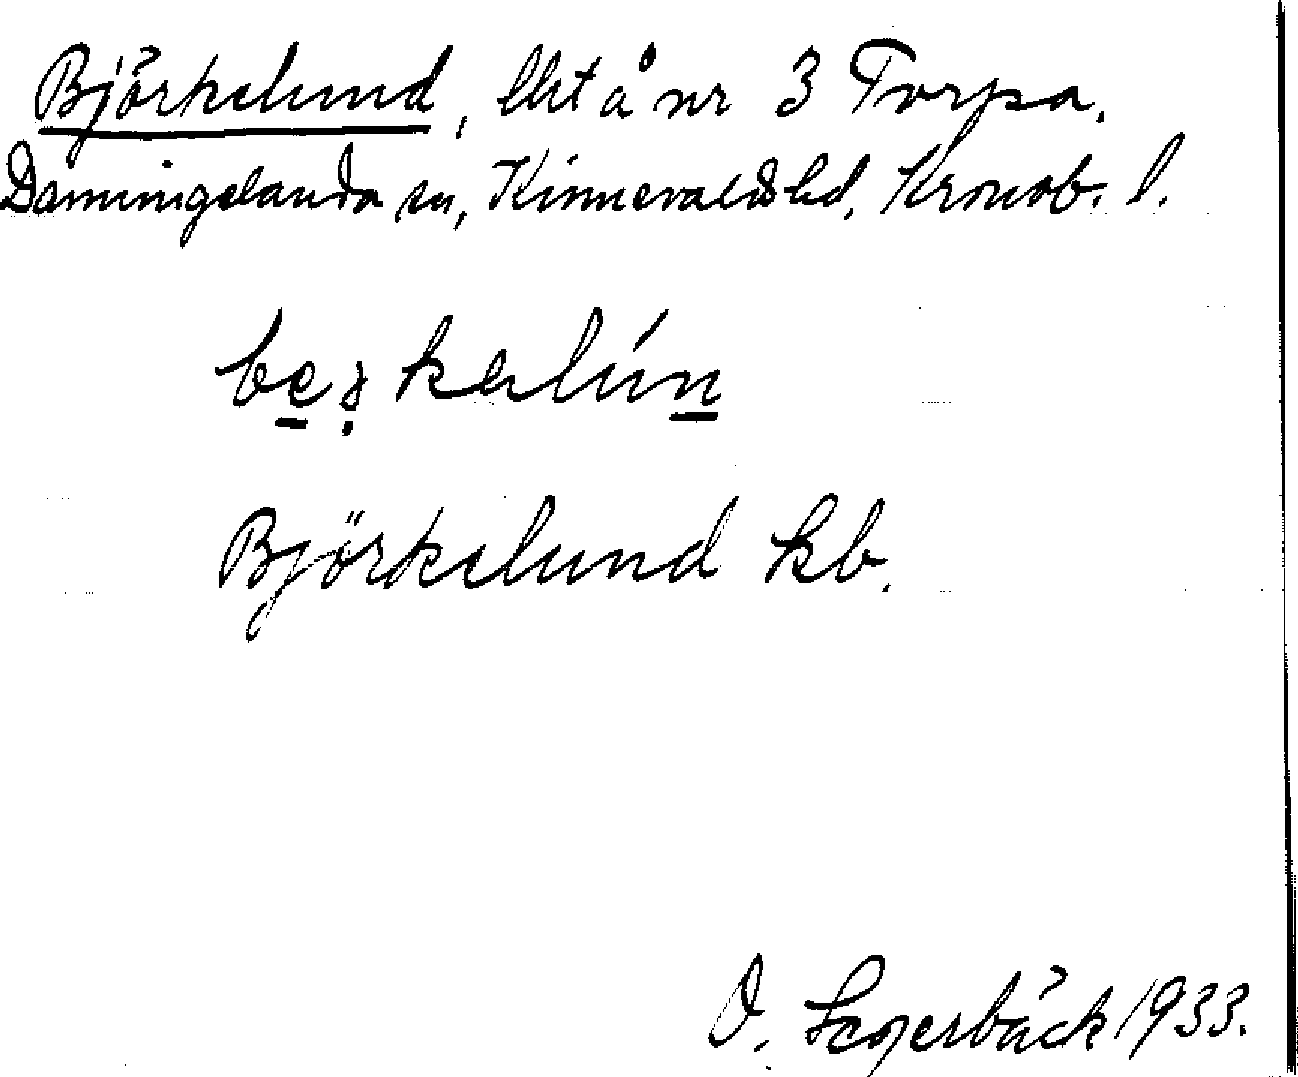 Björkelund, lht å nr 3 Torpa.
Dänningelanda sn, Kinnevalds hd, Kronob. l.
be̲ṛkəlún̲
Björkelund kb.
O. Segerbäck 1933.